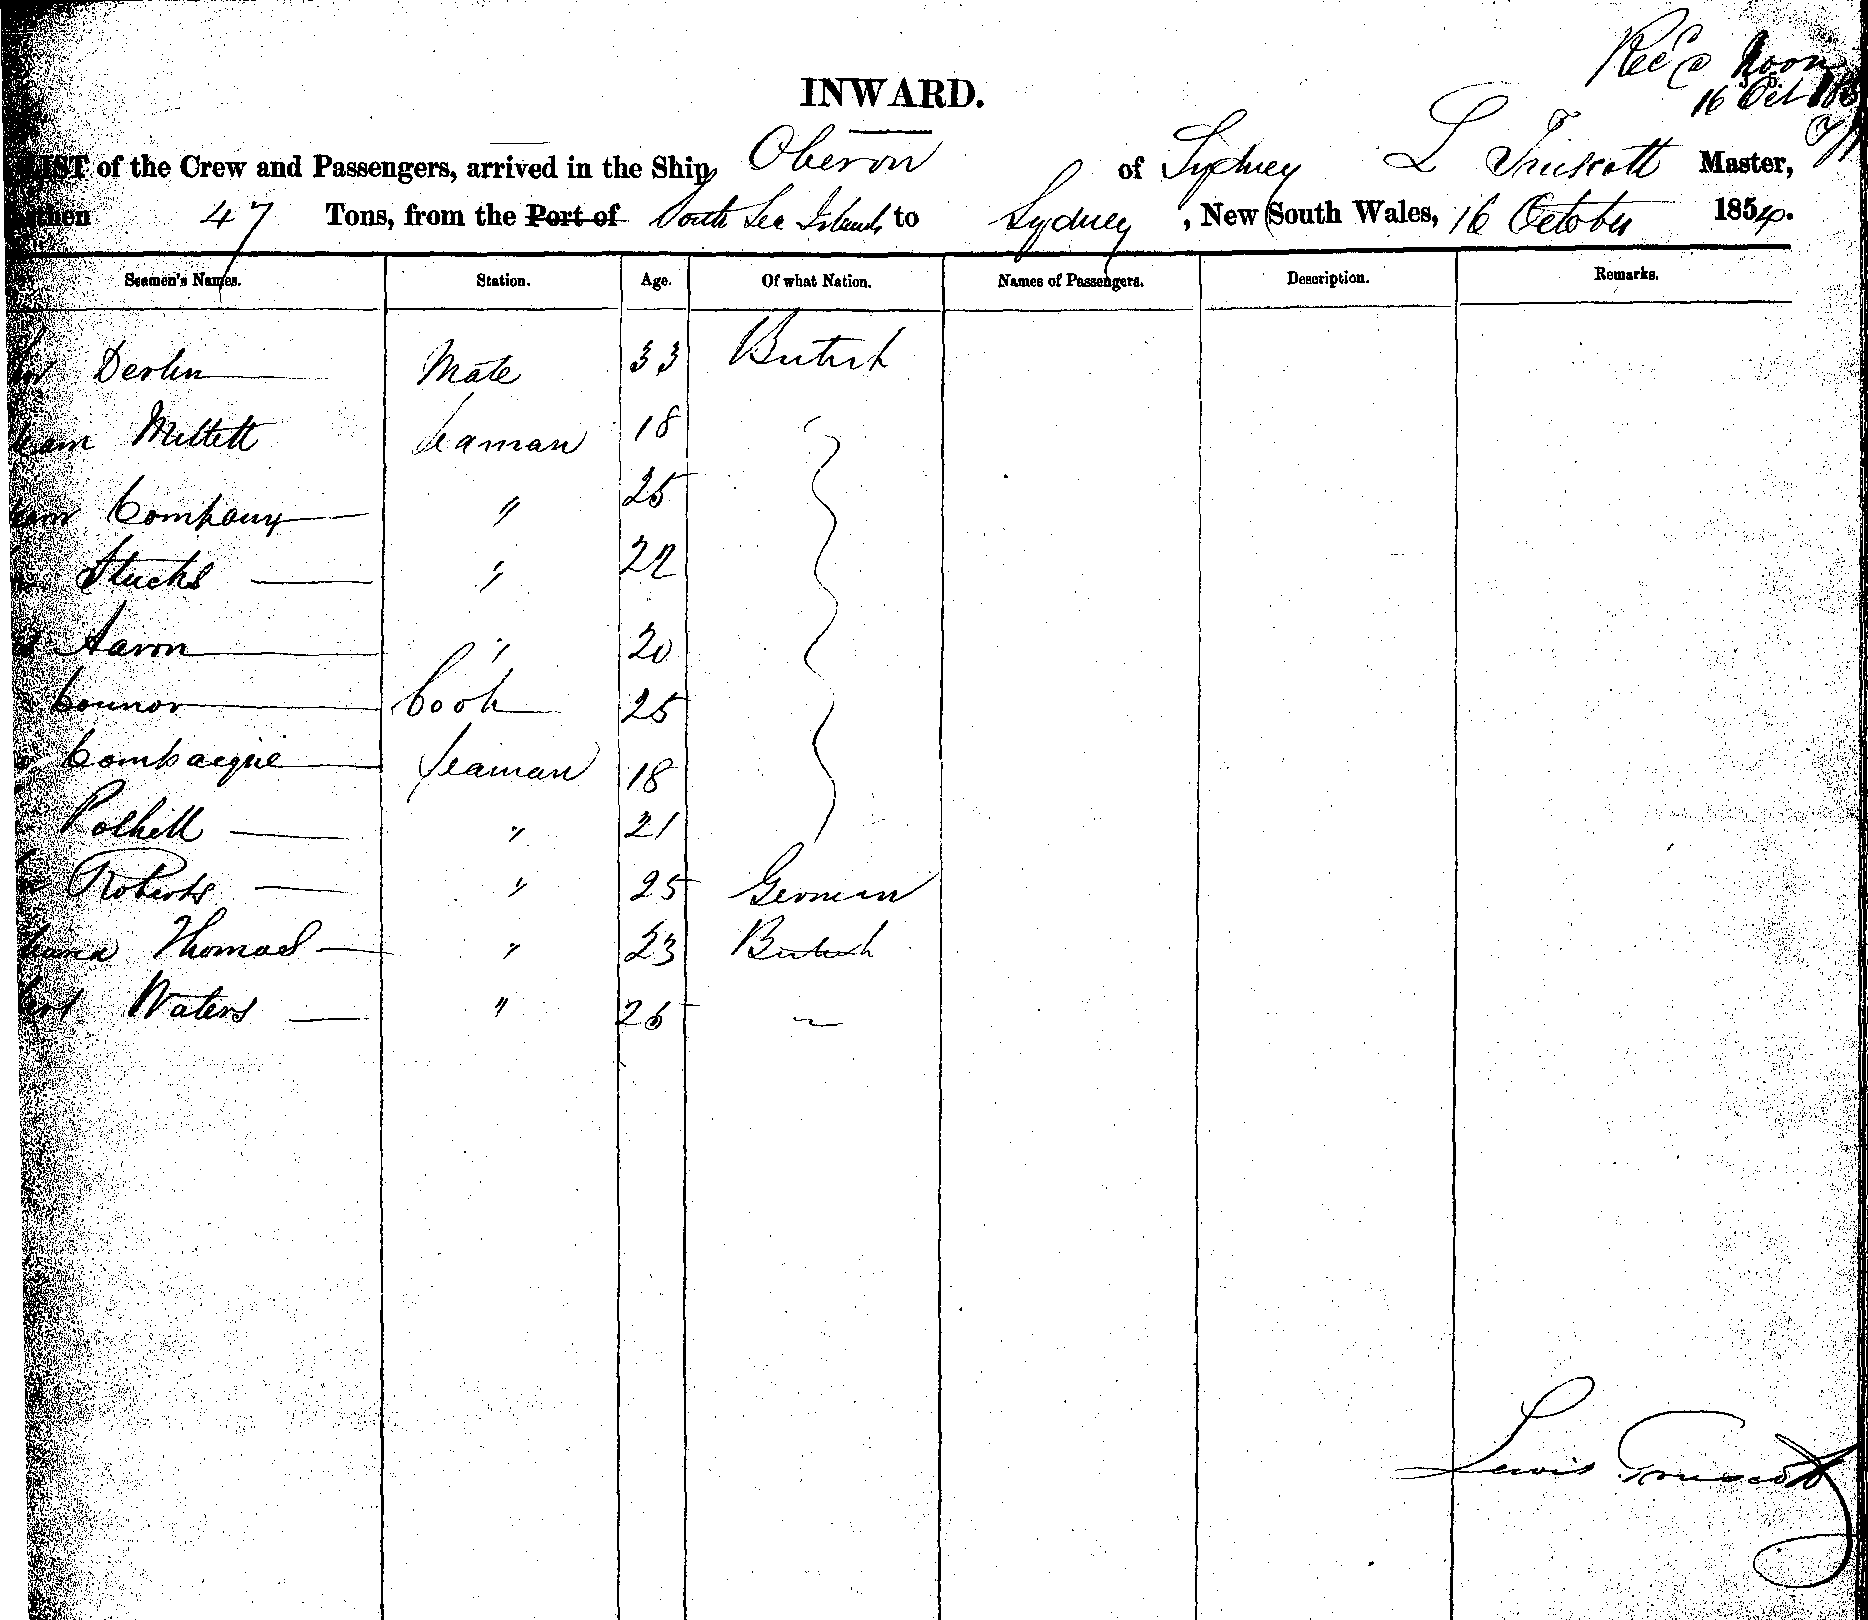 Rec'd Noon
16 Oct
INWARD.
LIST of the Crew and Passengers, arrived in the Ship Oberon of Sydney L Truscott Master,
Burthen 47 Tons, from the Port of South Sea Islands to Sydney, New South Wales, 16 October 1854.
Seamen's Names. Station. Age. Of what Nation. Names of Passengers. Description. Remarks.
Derlin Mate 33 British
Mellett Seaman 18
Company " 25
Stucks " 22
Aaron " 20
Connor Cook 25
Compaigne Seaman 18
Polhill " 21
Roberts " 25 German
Thomas " 23 British
Waters " 26 "
Lewis Truscott